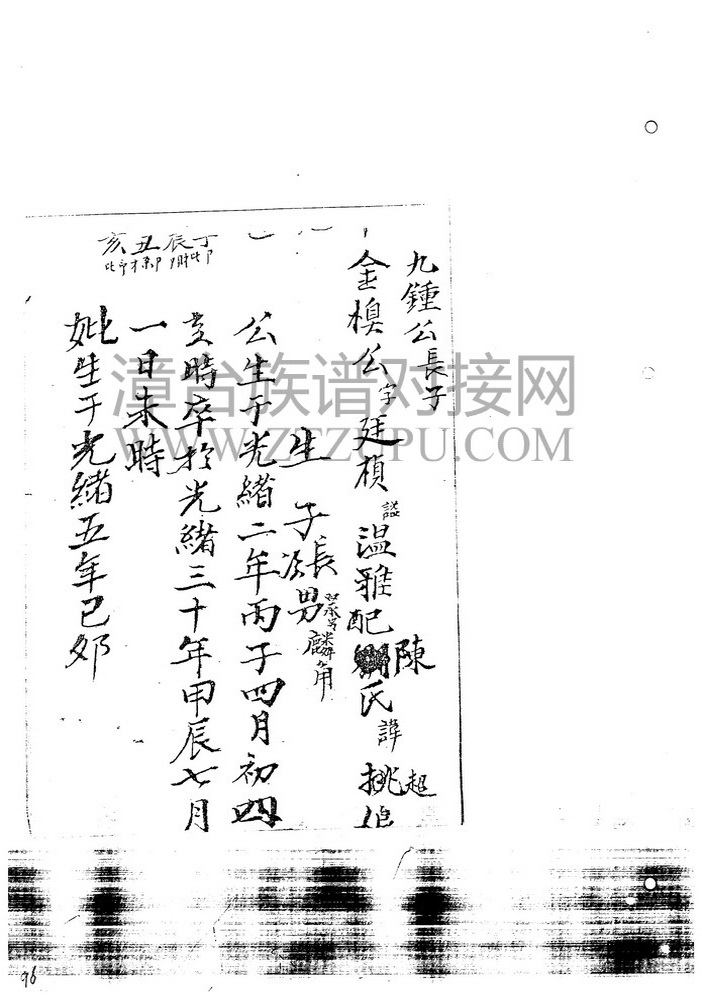 九鍾公長子
金模公字廷楨諡温雅配陳氏諱挑
超
生子長男
麟角
公生于光緒二年丙子四月初四
時卒於光緒三十年甲辰七月
一日未時
妣生于光緒五年己夘
丁辰丑亥
漳台族谱对接网
WWW.ZTZUPU.COM
96